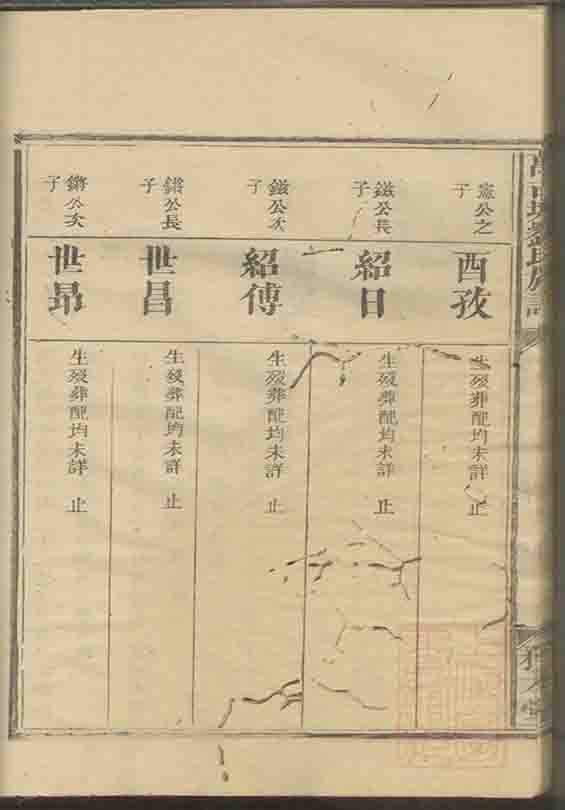 劉氏族譜
憲公之子
酉孜
生歿葬配均未詳 止
鎡公長子
紹日
生歿葬配均未詳 止
鎡公次子
紹傅
生歿葬配均未詳 止
公長子
世昌
生歿葬配均未詳 止
公次子
世昂
生歿葬配均未詳 止